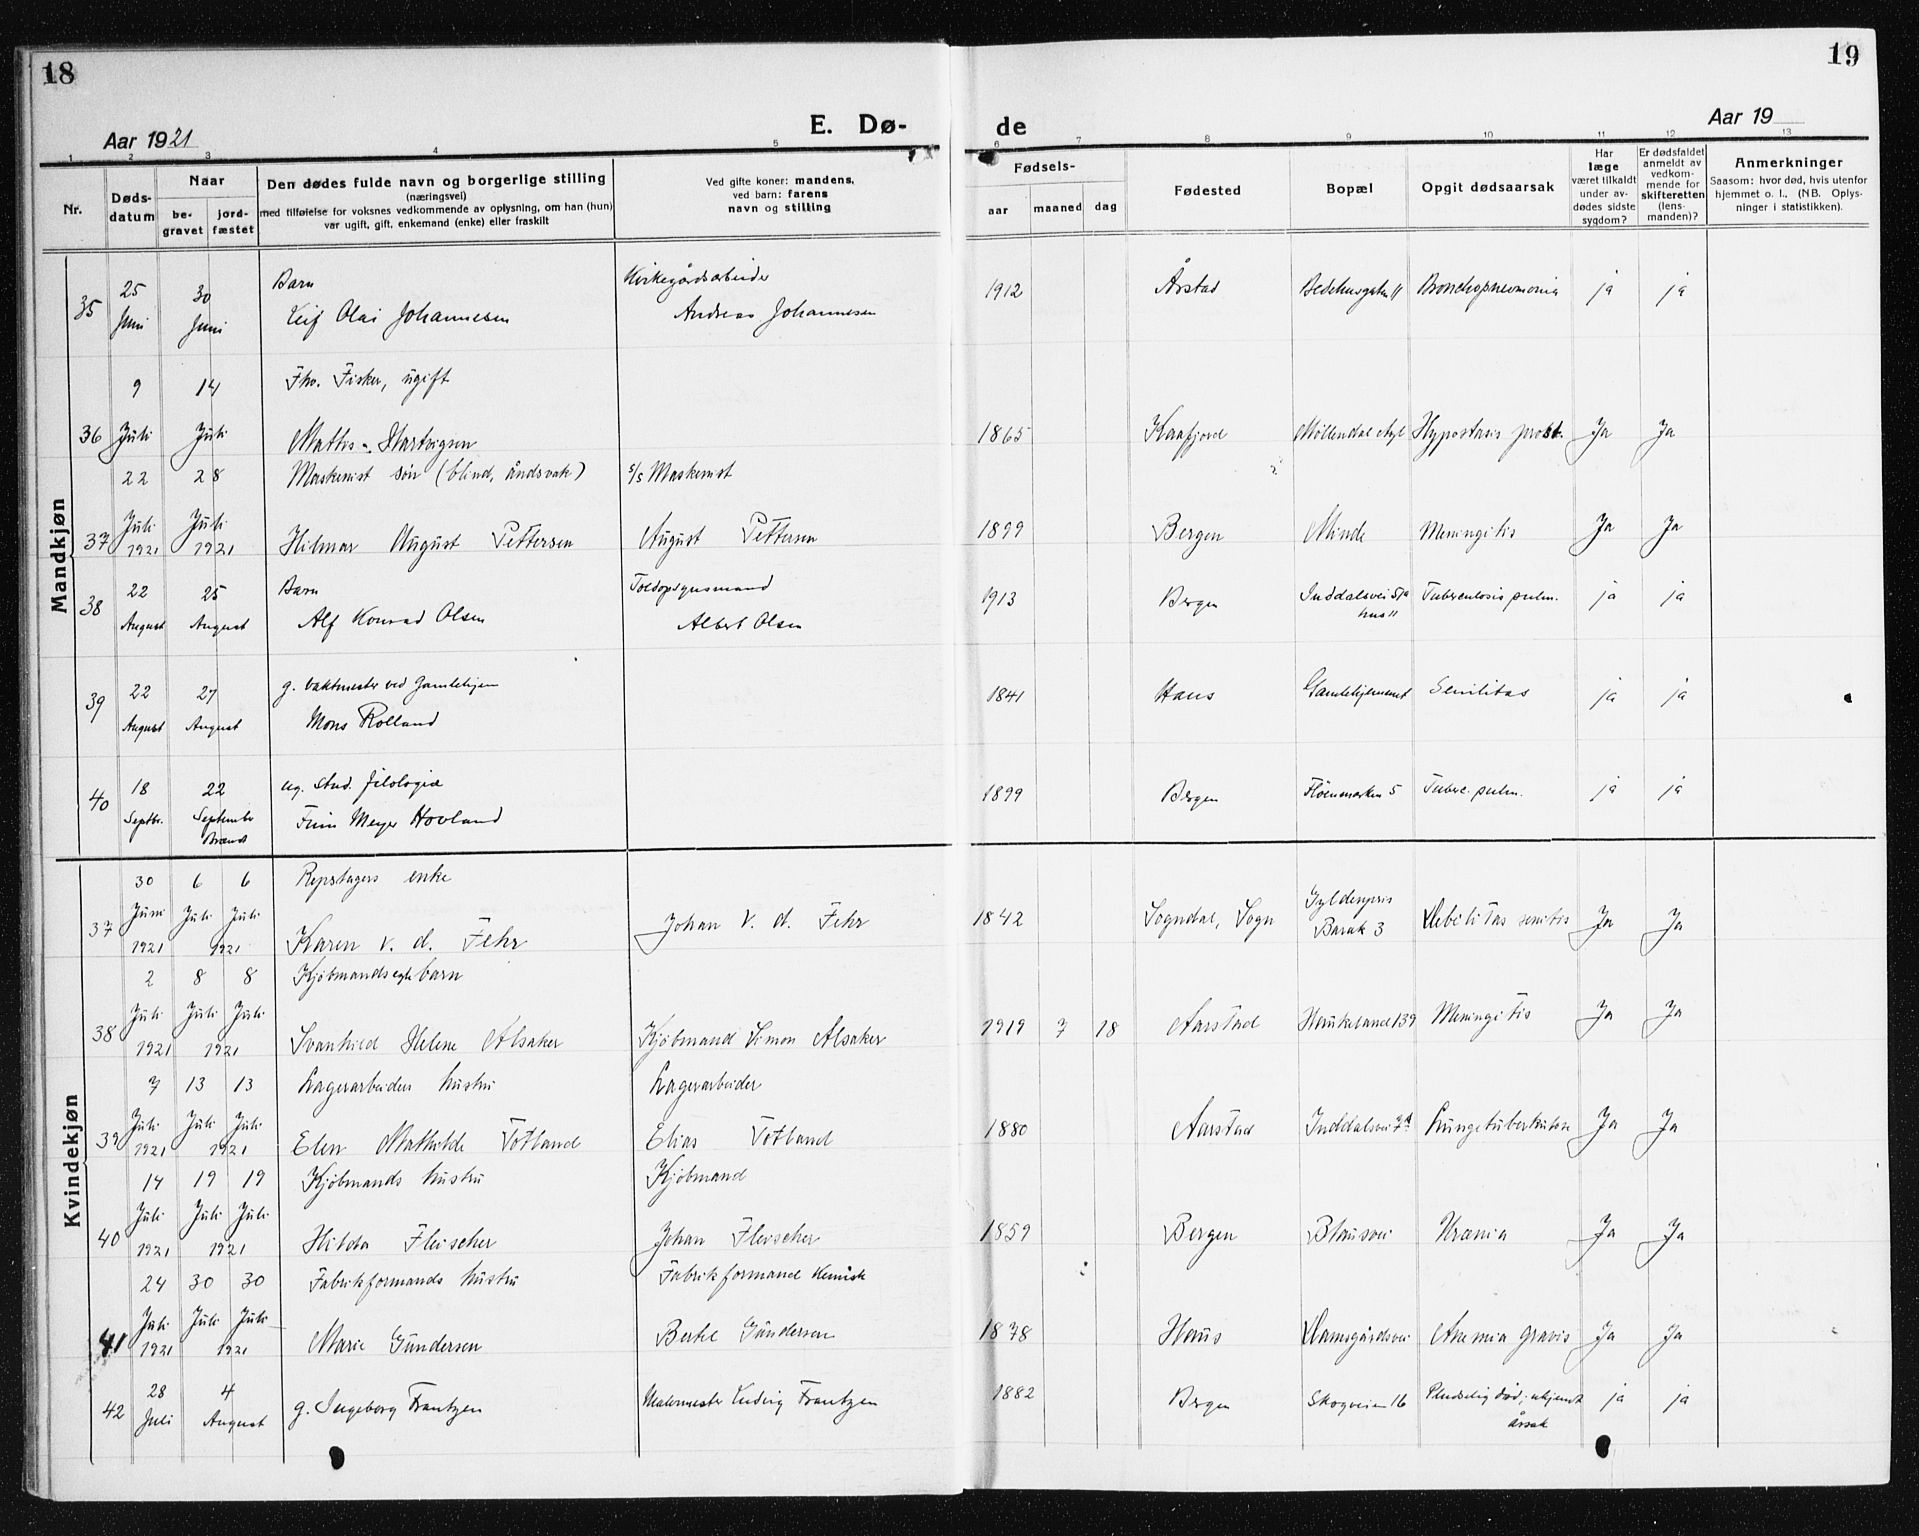 18
19
Aar 1921
E. Dø-
de
Aar 19
1 2 3 4 5 6 7 8 9 10 11 12 13
Nr.
Døds-
datum
Naar
be-
gravet
jord-
fæstet
Den dødes fulde navn og borgerlige stilling
(næringsvei)
med tilføielse for voksnes vedkommende av oplysning, om han (hun)
var ugift, gift, enkemand (enke) eller fraskilt
Ved gifte koner: mandens,
ved barn: farens
navn og stilling
Fødsels-
aar maaned dag
Fødested
Bopæl
Opgit dødsaarsak
Har
læge
været tilkaldt
under av-
dødes sidste
sygdom?
Er dødsfaldet
anmeldt av
vedkom-
mende for
skifteretten
(lens-
manden)?
Anmerkninger
Saasom: hvor død, hvis utenfor
hjemmet o. l., (NB. Oplys-
ninger i statistikken).
Mandkjøn
25 30 Barn Kirkegårdsarbeider
35 Juni Juni Leif Olai Johannesen Andreas Johannesen 1912 Årstad Bedehusgaten 11 Bronchopneumonia ja ja
9 14 Fhv. Fisker, ugift
36 Juli Juli Mattis Hartvigsen 1865 Kaafjord Møllendal Hypostasis Ja Ja
22 28 Maskinist søn (blind, åndsvak) s/s Maskinist
37 Juli 1921 Juli 1921 Hilmar August Pettersen August Pettersen 1899 Bergen Minde Meningitis Ja Ja
22 25 Barn Toldopsynsmand
38 August August Alf Konrad Olsen Albert Olsen 1913 Bergen Inddalsvei 57a hus 11 Tuberculosis pulm. ja ja
22 27 g. vaktmester ved Gamlehjem
39 August August Mons Rolland 1841 Haus Gamlehjemmet Senilitas ja ja
18 22 ug. stud. filologiæ
40 Septbr. September Brændt Finn Meyer Hovland 1899 Bergen Fløenmarken 5 Tuberc. pulm. ja ja
Kvindekjøn
30 6 6 Repslagers enke
37 Juni Juli Juli 1921 1921 Karen v. d. Fehr Johan v. d. Fehr 1842 Sogndal, Sogn Gyldenpris Barak 3 Debilitas senilis Ja Ja
2 8 8 Kjøbmands egte barn
38 Juli Juli Juli 1921 1921 Svanhild Helene Alsaker Kjøbmand Simon Alsaker 1919 7 18 Aarstad Haukeland 139 Meningitis Ja Ja
7 13 13 Lagerarbeiders hustru Lagerarbeider
39 Juli Juli Juli 1921 1921 Elen Mathilde Totland Elias Totland 1880 Aarstad Inddalsvei 7a Lungetuberkulose Ja Ja
14 19 19 Kjøbmands hustru Kjøbmand
40 Juli Juli Juli 1921 1921 Hilda Fleischer Johan Fleischer 1859 Bergen Blausvei Uræmia Ja Ja
24 30 30 Fabrikformands hustru Fabrikformand Kemisk
41 Juli Juli Juli 1921 1921 Marie Gundersen Bertel Gundersen 1878 Haus Damsgårdsvei Anemia gravis Ja Ja
28 4
42 Juli August g. Ingeborg Frantzen Malermester Ludvig Frantzen 1882 Bergen Skogveien 16 Pludselig død; ukjendt årsak ja ja